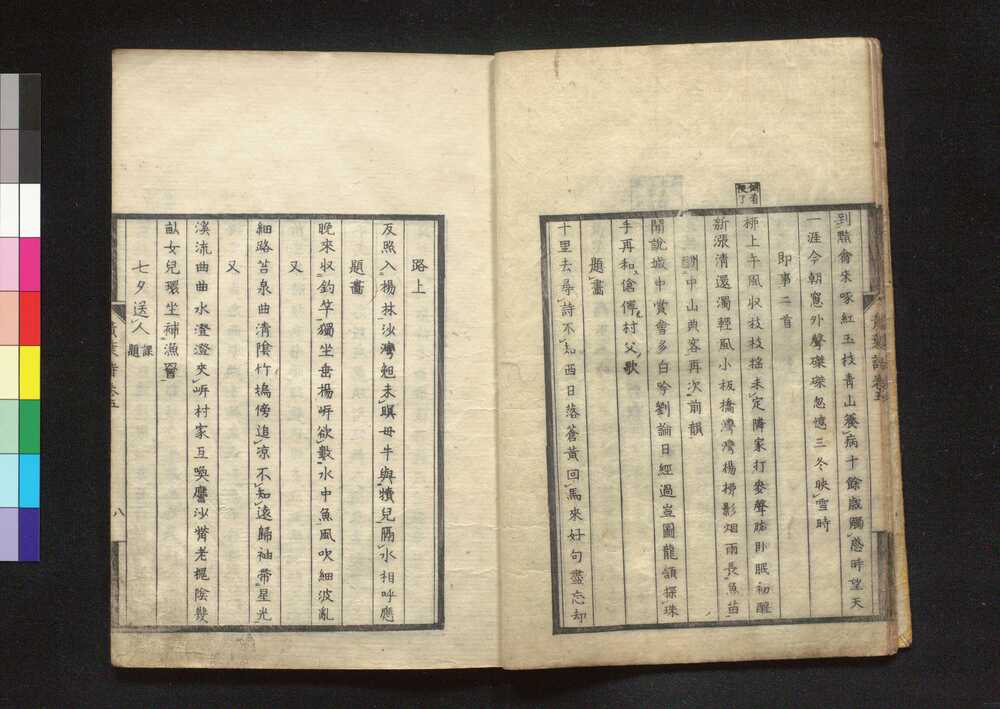 到黧禽来啄紅玉枝青山養病十餘歳觸惑時望天
一涯今朝窓外聲磔磔忽憶三冬映雪時
即事二首
栁上午風収枝枝揺未定隣家打麥聲臨卧眠初醒
新漲清還濁輕風小板橋灣灣楊栁影烟雨長魚苗
酬中山典客再次前韻
聞說城中賞會多白吟劉論日經過豈圖龍頷探珠
手再和傖儜村父歌
題畵
十里去尋詩不知西日落蒼黄回馬來好句盡忘却
路上
反照入楊林沙灣廻未暝母牛與犢兒隔水相呼應
題畵
晚來収釣竿獨坐垂揚岍欲數水中魚風吹細波亂
又
細路苔泉曲清陰竹塢傍追凉不知遠歸袖帶星光
又
溪流曲曲水澄澄夾岍村家互喚譍沙觜老槐陰幾
畝女兒環坐補漁罾
七夕送人 課題
黄葉詩 卷五
八